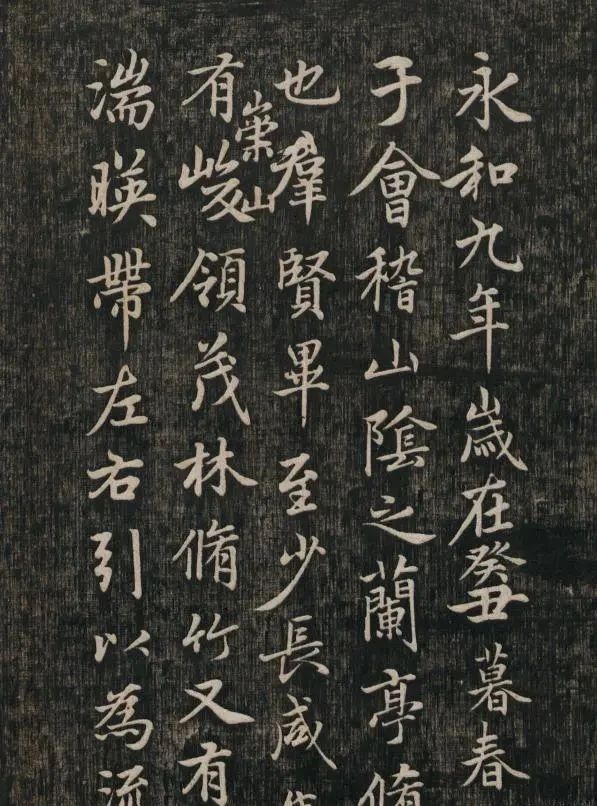 永和九年歲在癸丑暮春
于會稽山陰之蘭亭脩
也羣賢畢至少長咸
有崇山峻領茂林脩竹又有
湍暎帶左右引以為流